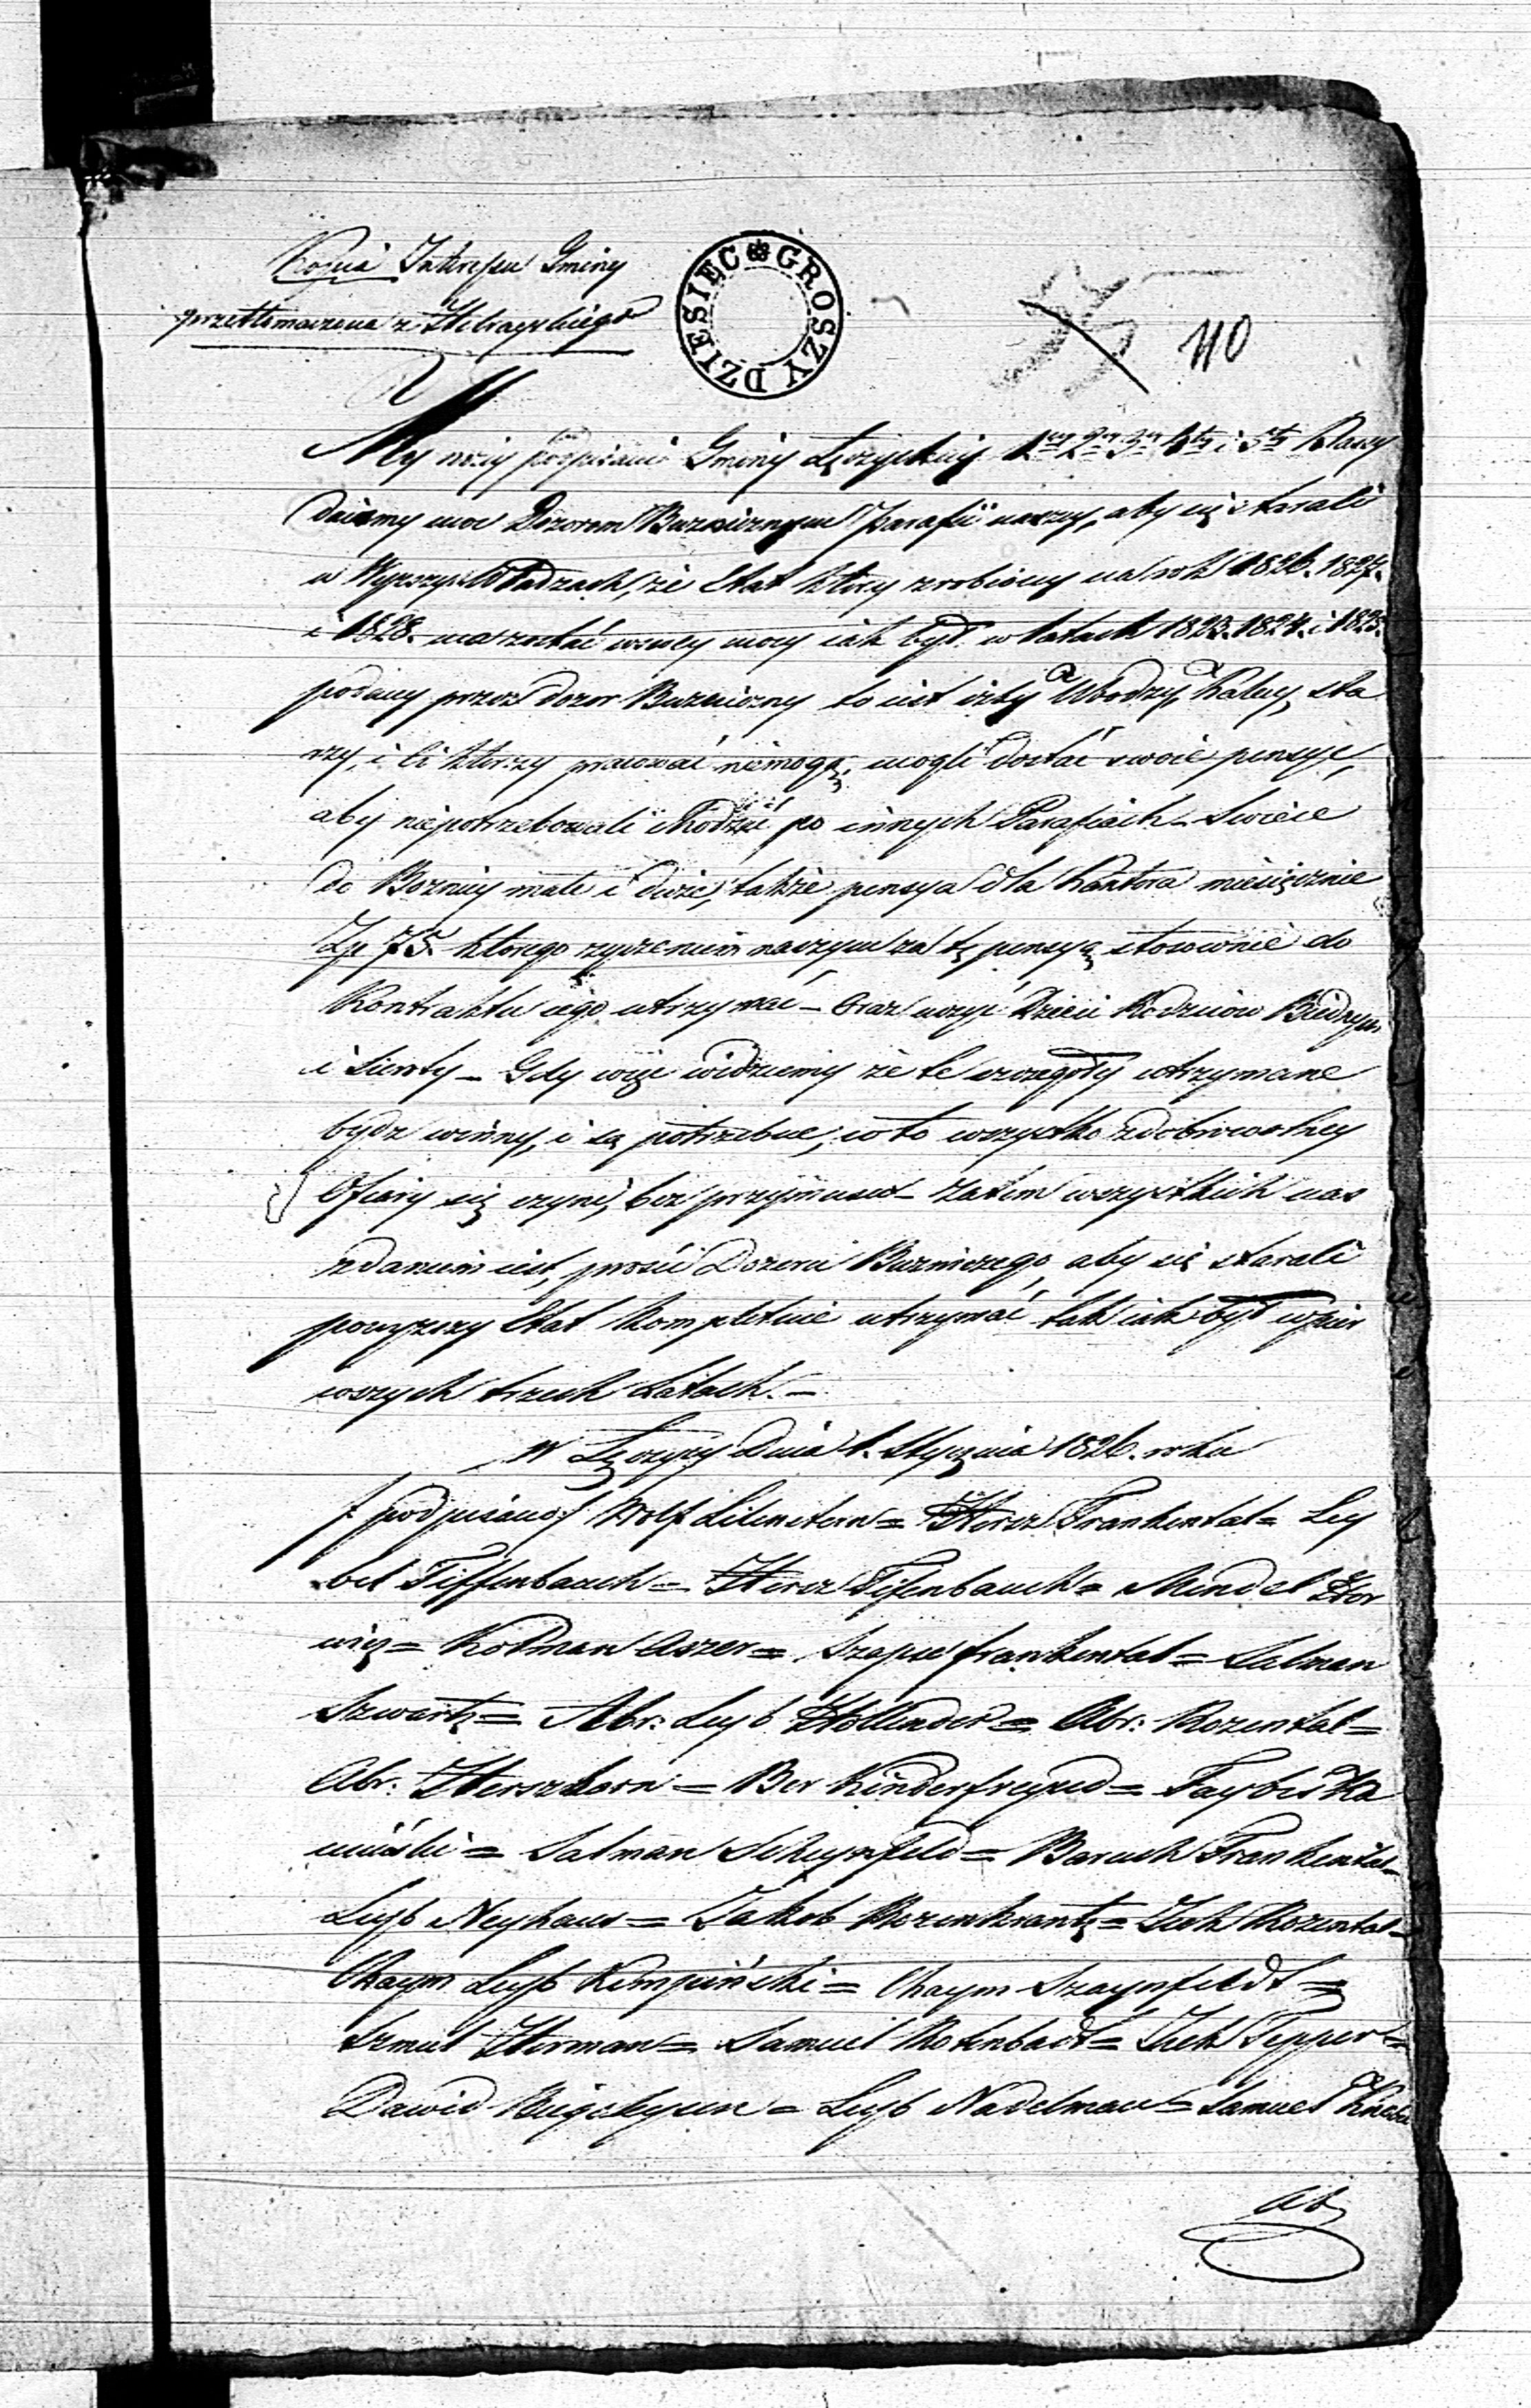 Kopia Interesu Gminy
przetłomaczona z Hebrayskiego
DZIESIEC GROSZY
110
My niżej podpisani Gminy Łęczyckiey 1ey 2ey 3ey 4tey i 5tey Klassy
daiemy moc Dozorem Bużnicznym Parafii naszey, aby się starali
w Wyższych Władzach, że Etat który zrobiony na rok 1826. 1827.
i 1828. ma zostać w swey mocy iak był w latach 1823. 1824. i 1825.
podany przez dozor Bużniczny to iest iżby Ubodzy, Kalecy, sta
rzy, i Ci którzy pracować niemogą, mogli dostać swoie pensye,
aby niepotrzebowali chodzić po innych Parafiach – Swiece
do Boznicy małe i duże, także pensya dla Kantora miesięcznie
Zp 75. którego życzeniem naszym za tę pensyą stosownie do
Kontraktu iego utrzymać – Oraz uczyć Dzieci Rodziców Biednych
i Sieroty – Gdy więc widziemy że te szczegóły utrzymane
bydz winny, i są potrzebne, i to wszystko z dobrowolney
Ofiary się czyni, bez przymusu – zatem wszystkich nas
zdaniem iest, prosić Dozoru Bużniczego, aby się starali
powyższy Etat kompletnie utrzymać tak iak był w pier
wszych trzech Latach. –
W Łęczycy Dnia 1. Stycznia 1826. roku
/ podpisano / Wolf Lilenstern = Hersz Frankental = Ley
bel Tiffenbach = Hersz Tifenbauch = Mendel Hor
wig = Kolman Aszer = Szapse frankental = Salman
Szwartz = Abr: Leyb Hollender = Abr: Rozental =
Abr: Herszkorn = Ber Kinderfreynd = Faybis Ka
miński = Salman Scheynfeld = Baruch Frankental =
Leyb Neyhaus = Jakob Rozenkrantz = Icek Rozental =
Chaym Leyb Kempiński = Chaym Szaynfeldt =
Szmul Herman = Samuel Rotenbach = Icek Tepper =
Dawid = Leyb Nadelman = Samuel